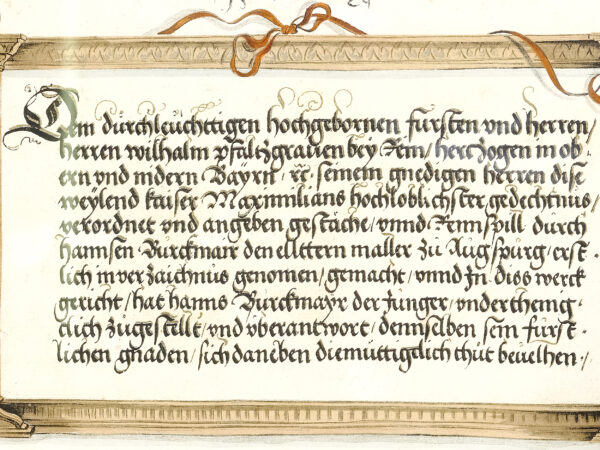 Dem durchleuchttigen hochgebornen fürsten vnd herren/
herren wilhalm pfaltzgrauen bey Rein/ hertzogen in ob
ern vnd nidern Bayrn/ ꝛc. seinem gnedigen herren dise
weylend kaiser Maximilians hochloblichster gedechtnus/
verordnet vnd angeben gestäche/ vnnd Rennspill durch
hannsen Burckmair den elltern maller zu Augspurg/ erst.
lich in verzaichnus genomen/ gemacht/ vnnd jn diss werck
gericht/ hat hanns Burckmayr der Junger/ vnderthenig.
clich zugestellt/ vnd vberantwort/ dennselben sein fürst.
lichen gnaden/ sich daneben diemuttigclich thut beuelhen./